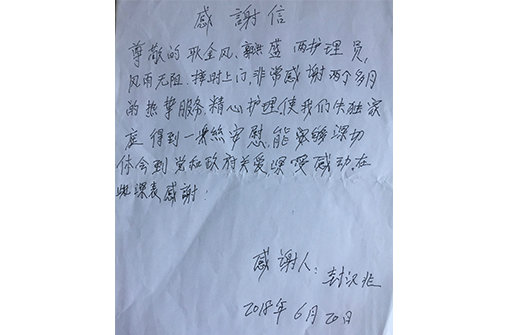 感謝信
尊敬的耿金风、 盛 两护理员,
风雨无阻、按时上门,非常感谢两个多月
的热挚服务,精心护理,使我们失独家
庭得到一絲安慰,能夠深切
体会到党和政府关爱,深受感动,在
此深表感謝!
感謝人:封汉
2018年6月20日